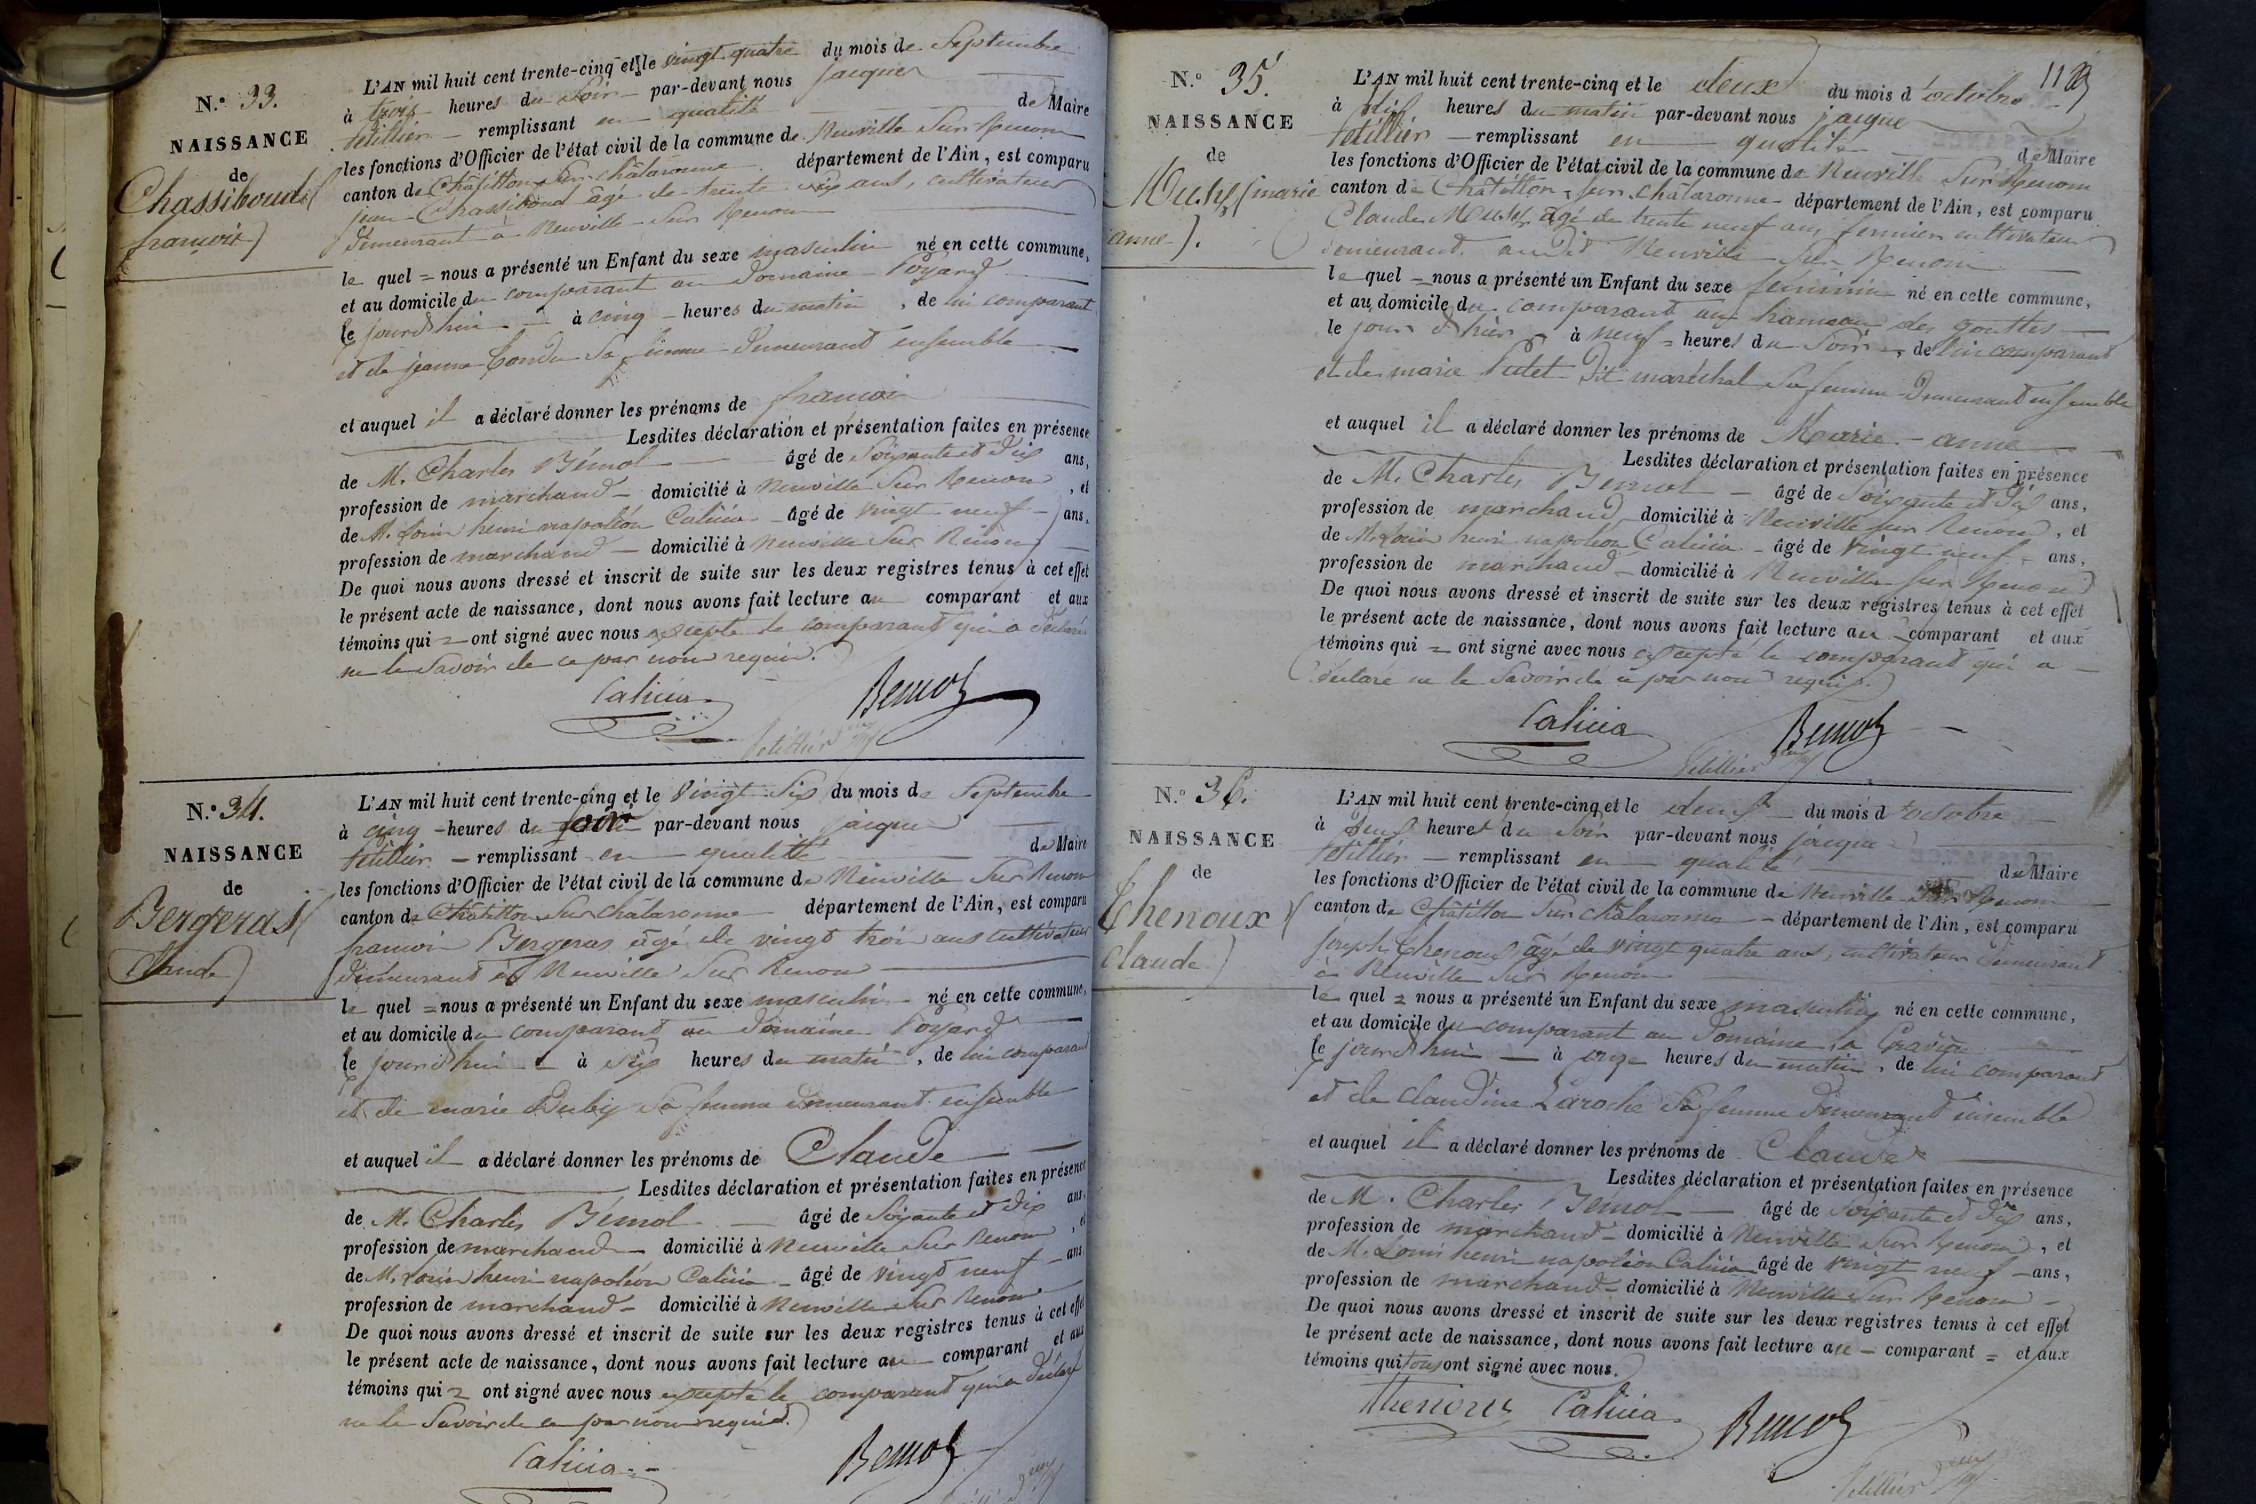 N.º 33.
NAISSANCE
de
Chassiboud
françois
L'AN mil huit cent trente-cinq et le vingt quatre du mois de Septembre
à trois heures du soir par-devant nous jacques
fetillier remplissant en qualité de Maire
les fonctions d'Officier de l'état civil de la commune de Neuville sur Renom
canton de Châtillon sur châlaronne département de l'Ain, est comparu
jean Chassiboud âgé de trente six ans, cultivateur
demeurant à Neuville sur Renom
le quel = nous a présenté un Enfant du sexe masculin né en cette commune,
et au domicile du comparant au domaine Poyard
le jourd'hui à cinq heures du matin, de lui comparant
et de jeanne sa femme demeurant ensemble
et auquel il a déclaré donner les prénoms de françois
Lesdites déclaration et présentation faites en présence
de M. Charles Bémol âgé de soixante et dix ans,
profession de marchand domicilié à Neuville sur Renom, et
de M. louis henri napoléon Calicia âgé de vingt neuf ans,
profession de marchand domicilié à Neuville sur Renom
De quoi nous avons dressé et inscrit de suite sur les deux registres tenus à cet effet
le présent acte de naissance, dont nous avons fait lecture au comparant et aux
témoins qui = ont signé avec nous excepté le comparant qui a déclaré
ne le savoir de ce par nous requis.
Calicia Bemol
fetillier
N.º 34.
NAISSANCE
de
Bergeras
Claude
L'AN mil huit cent trente-cinq et le vingt six du mois de Septembre
à cinq heures du soir par-devant nous jacques
fetillier remplissant en qualité de Maire
les fonctions d'Officier de l'état civil de la commune de Neuville sur Renom
canton de Châtillon sur châlaronne département de l'Ain, est comparu
françois Bergeras âgé de vingt trois ans cultivateur
demeurant à Neuville sur Renom
le quel = nous a présenté un Enfant du sexe masculin né en cette commune,
et au domicile du comparant au domaine Poyard
le jourd'hui à six heures du matin, de lui comparant
et de marie Duby sa femme demeurant ensemble
et auquel il a déclaré donner les prénoms de Claude
Lesdites déclaration et présentation faites en présence
de M. Charles Bémol âgé de soixante et dix ans,
profession de marchand domicilié à Neuville sur Renom, et
de M. louis henri napoléon Calicia âgé de vingt neuf ans,
profession de marchand domicilié à Neuville sur Renom
De quoi nous avons dressé et inscrit de suite sur les deux registres tenus à cet effet
le présent acte de naissance, dont nous avons fait lecture au comparant et aux
témoins qui = ont signé avec nous excepté le comparant qui a déclaré
ne le savoir de ce par nous requis.
Calicia Bemol
N.º 35.
NAISSANCE
de
marie
anne
L'AN mil huit cent trente-cinq et le deux du mois d'octobre
à heures du matin par-devant nous jacques
fetillier remplissant en qualité de Maire
les fonctions d'Officier de l'état civil de la commune de Neuville sur Renom
canton de Châtillon sur châlaronne département de l'Ain, est comparu
Claude âgé de trente neuf ans fermier cultivateur
demeurant audit Neuville sur Renom
le quel = nous a présenté un Enfant du sexe feminin né en cette commune,
et au domicile du comparant au hameau des gouttes
le jour d'hier à neuf heures du soir, de lui comparant
et de marie Putet dit maréchal sa femme demeurant ensemble
et auquel il a déclaré donner les prénoms de Marie-anne
Lesdites déclaration et présentation faites en présence
de M. Charles Bemol âgé de soixante et dix ans,
profession de marchand domicilié à Neuville sur Renom, et
de M. Louis henri napoléon Calicia âgé de vingt neuf ans,
profession de marchand domicilié à Neuville sur Renom
De quoi nous avons dressé et inscrit de suite sur les deux registres tenus à cet effet
le présent acte de naissance, dont nous avons fait lecture au comparant et aux
témoins qui = ont signé avec nous excepté le comparant qui a
déclaré ne le savoir de ce par nous requis.
Calicia Bemol
fetillier
N.º 36.
NAISSANCE
de
Thenoux
claude
L'AN mil huit cent trente-cinq et le deux du mois d'octobre
à heures du soir par-devant nous jacques
fetillier remplissant en qualité de Maire
les fonctions d'Officier de l'état civil de la commune de Neuville sur Renom
canton de Châtillon sur châlaronne département de l'Ain, est comparu
joseph Thenoux âgé de vingt quatre ans, cultivateur demeurant
à Neuville sur Renom
le quel = nous a présenté un Enfant du sexe masculin né en cette commune,
et au domicile du comparant au domaine la
le jourd'hui à onze heures du matin, de lui comparant
et de claudine Laroche sa femme demeurant ensemble
et auquel il a déclaré donner les prénoms de Claude
Lesdites déclaration et présentation faites en présence
de M. Charles Bémol âgé de soixante et dix ans,
profession de marchand domicilié à Neuville sur Renom, et
de M. Louis henri napoléon Calicia âgé de vingt neuf ans,
profession de marchand domicilié à Neuville sur Renom
De quoi nous avons dressé et inscrit de suite sur les deux registres tenus à cet effet
le présent acte de naissance, dont nous avons fait lecture au comparant = et aux
témoins qui tous ont signé avec nous.
Thenoux Calicia Bemol
fetillier